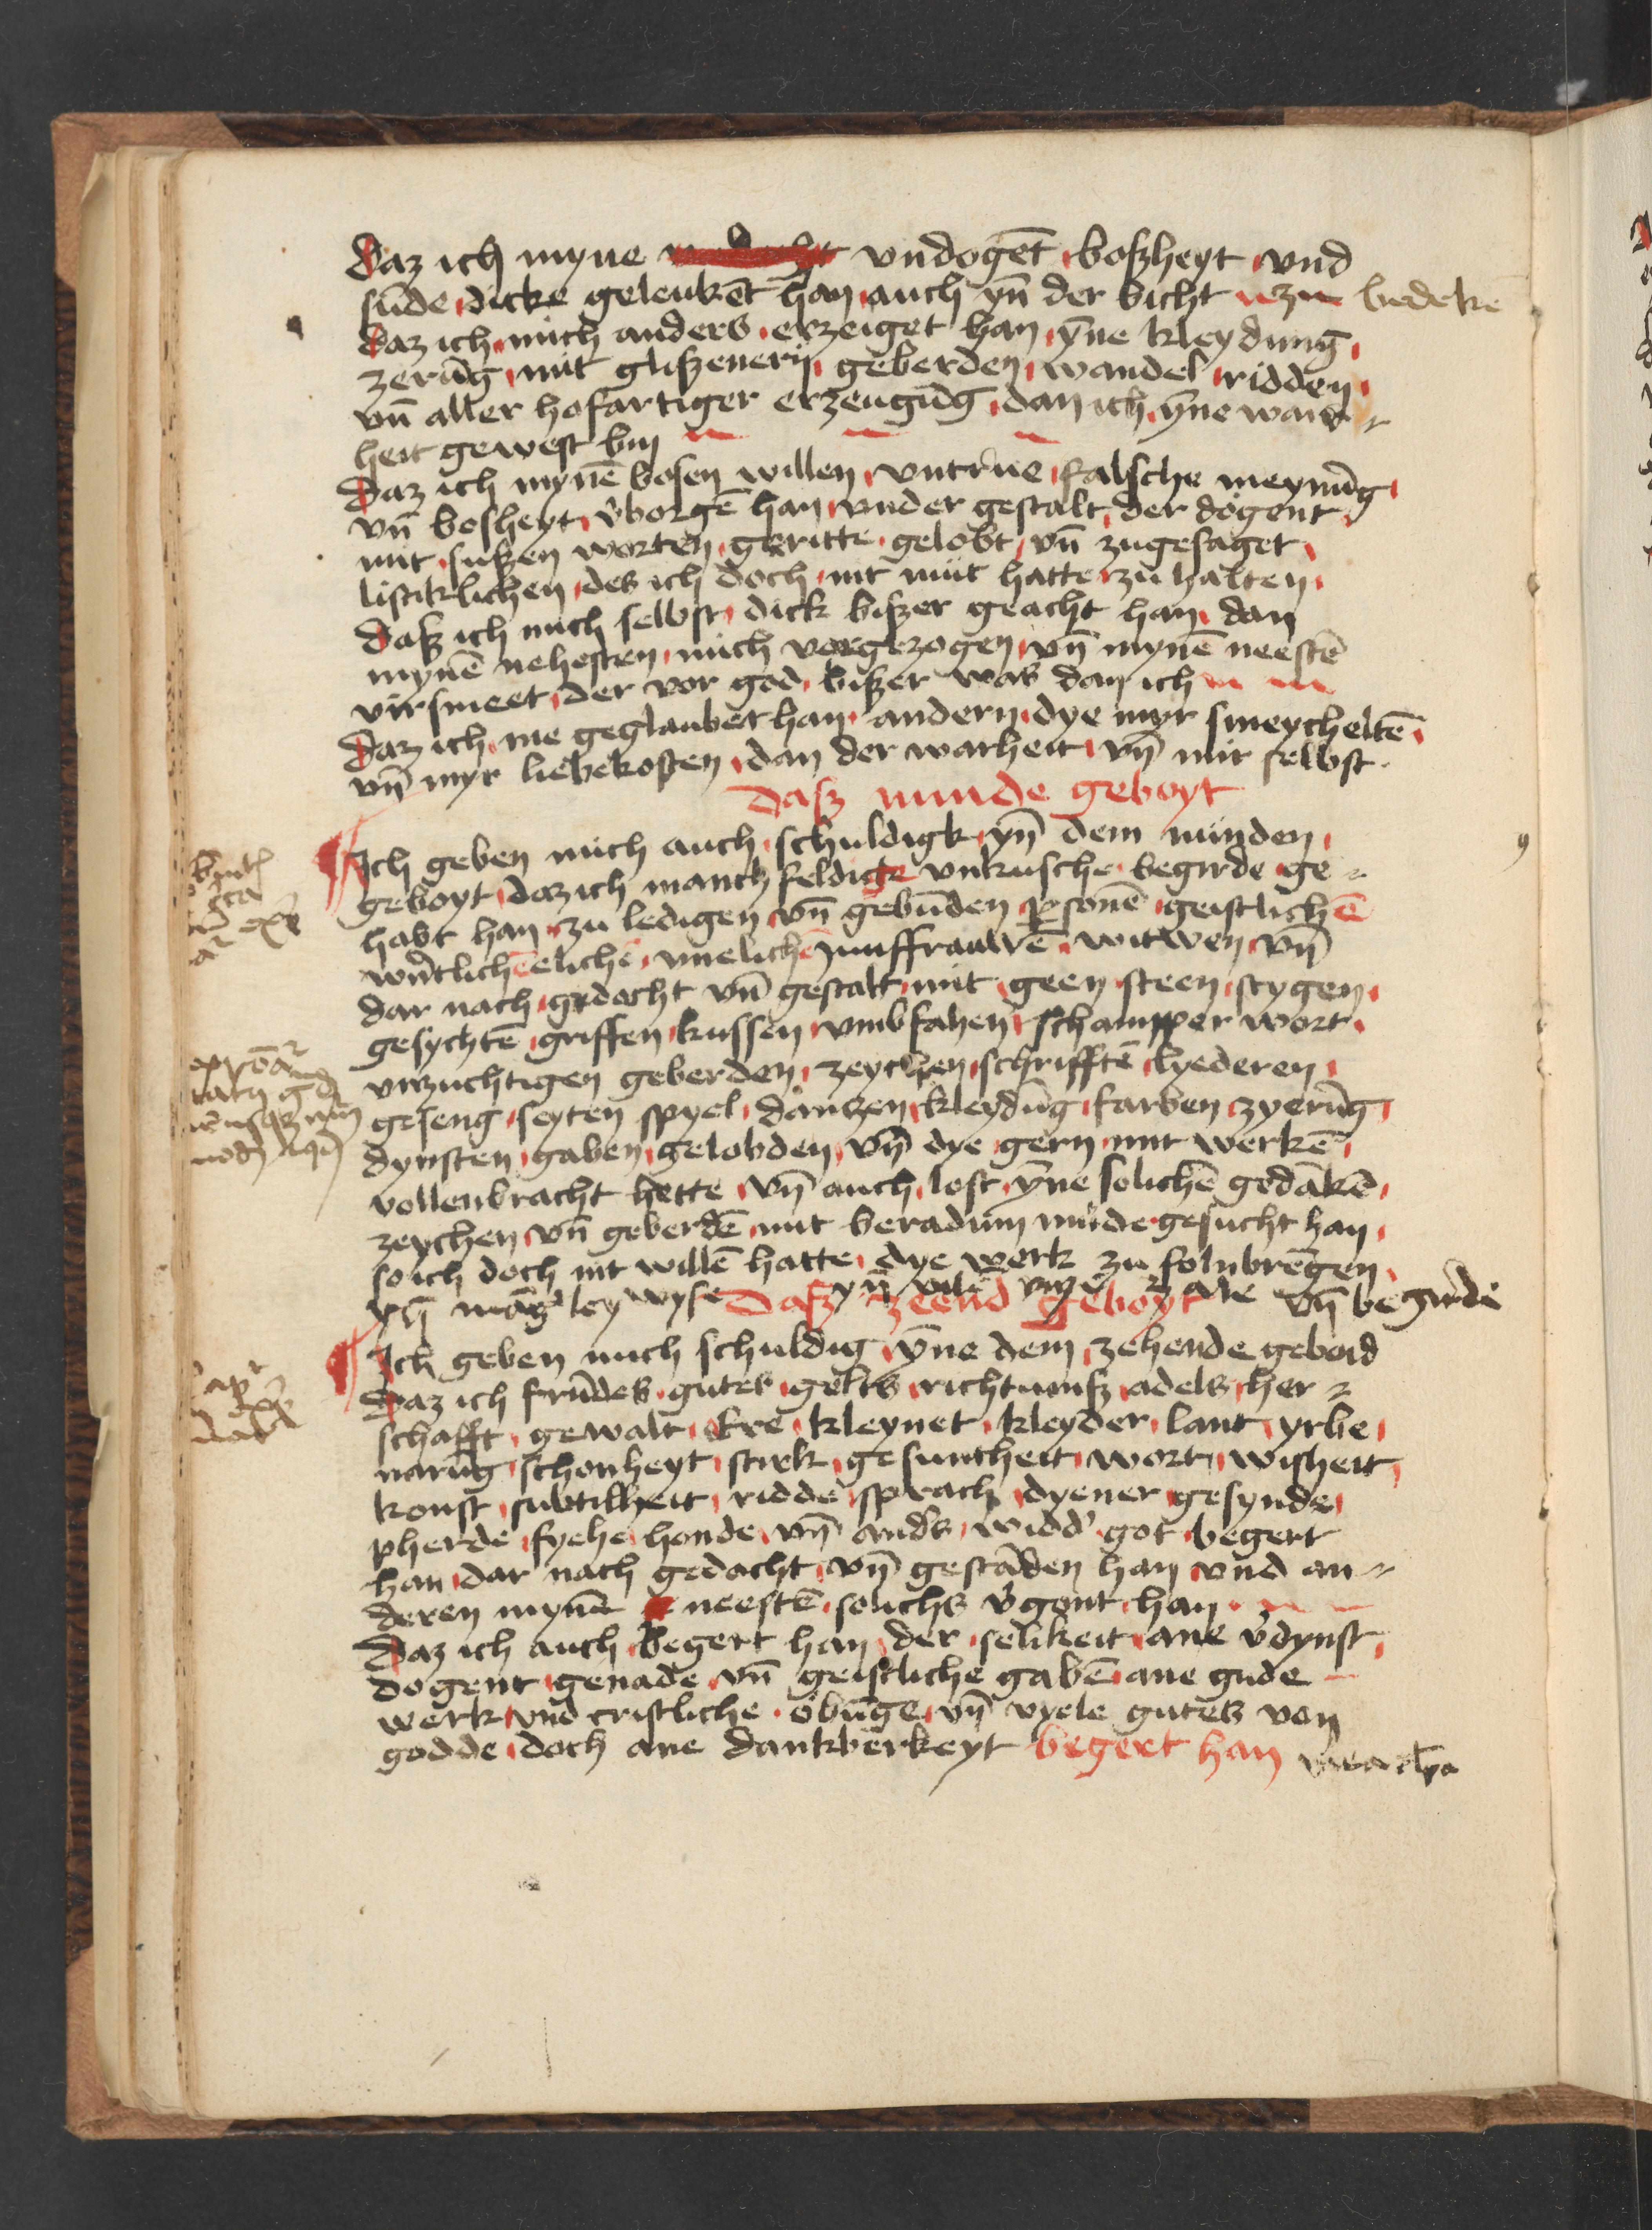 Daz ich myne undogēt boßheyt und
sūde dicke gelenkēt han auch yn̄ der bicht zu bedekē
Daz ich mich anders erzeiget han yn̄e kleydung
zerūg mit glißenerij geberden wandel ridden
un̄ aller hofartiger erzeugūg dan ich yn̄e war
heit gewest bin
Daz ich mynē bosen willen untrue falsche meynūg
vn̄ bosheyt v'borgē han under gestalt der dogent
mit sußen worten geritte gelobt vn̄ zugesaget
listiklichen des ich doch nit mut hatte zu halten
Daß ich mich selbst dick bißer geacht han dan
mynē nehesten mich vorgezogen vn̄ mynē neestē
virsmeet der vor god bißer was dan ich
Daz ich me geglaubet han andern dye myr smeycheltē
vn̄ myr liebekosten dan der warheit vn̄ mir selbst
Daß nunde geboyt
Ich geben mich auch schuldigk yn̄ dem nunden
geboyt daz ich manchfeldige unkusche begirde ge
habt han zu ledigen vn̄ gebūden p̄sonē geistlichē
w'ntlichē elichē unelichē junffrauwē witwen vn̄
dar nach gedacht vn̄ gestalt mit geen steen stygen
gesychtē griffen kussen umbfahen schamper wort
unzuchtigen geberden zeychen schrifftē lyederen
geseng seyten spyel dantzen kleydūg farben zyerūg
dynsten gaben gelobden vn̄ dye gern mit werkē
vollenbracht hette vn̄ auch lost yn̄e solichē gedākē
zeychen vn̄ geberdē mit beradum mude gesucht han
so ich doch nit willē hatte dye werk zu folnbrēgen
yn̄ māg'ley wyse yn̄ zale vn̄ begirde
Daß zeend geboyt
Ich geben mich schuldig yn̄e dem zehende geboid
Daz ich frūdes gutes gelts richtumß adels her
schafft gewalt ere kleynet kleyder lant yrbe
narūg schonheyt sterk gesuntheit wort wisheit
konst subtilheit ridde sprach dyener gesynde
pherde fyehe honde vn̄ and's widd' got begert
han dar nach gedacht vn̄ gestādē han und an
deren mynē neestē solichs v'gont han
Daz ich auch begert han der selikeit ane v'dynst
dogent genade vn̄ geistliche gabē ane gude
werk und cristliche obūge vn̄ vyele gutes von
godde doch ane dankberkeyt begert han